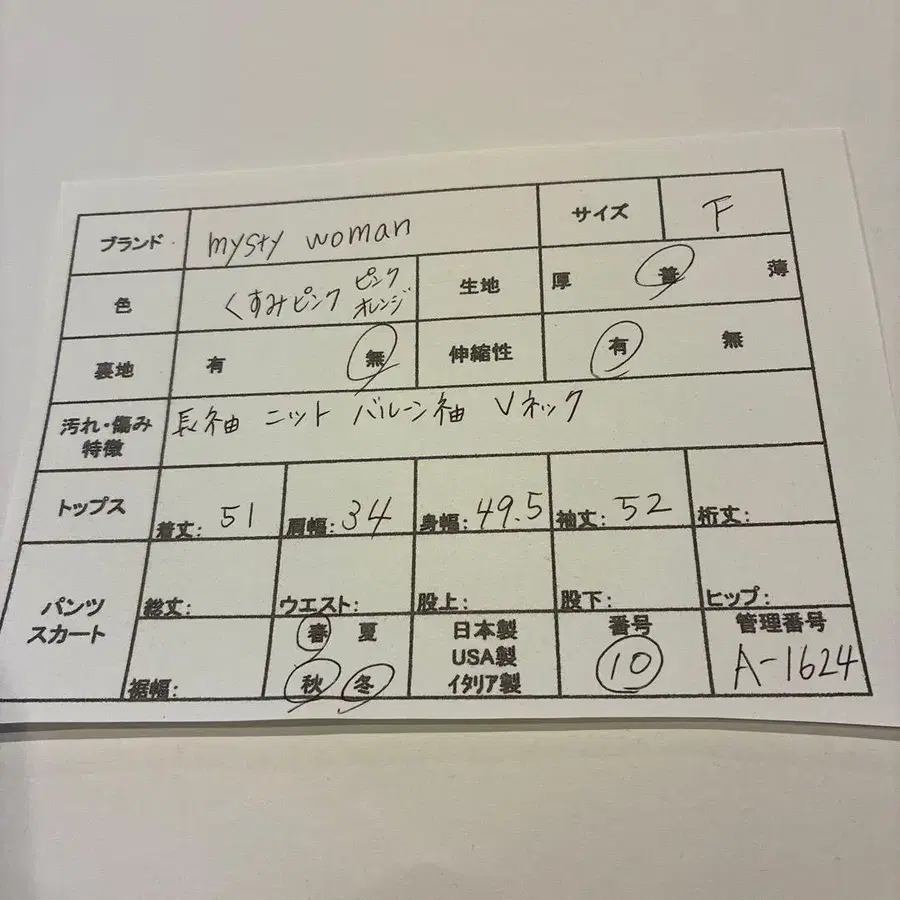 ブランド mysty woman サイズ F
色 くすみピンク ピンク オレンジ 生地 厚 普 薄
裏地 有 無 伸縮性 有 無
汚れ・傷み 特徴 長袖 ニット バルーン袖 Vネック
トップス 着丈: 51 肩幅: 34 身幅: 49.5 袖丈: 52 裄丈:
パンツ スカート 総丈: ウエスト: 股上: 股下: ヒップ:
裾幅: 春 夏 秋 冬 日本製 USA製 イタリア製 番号 10 管理番号 A-1624